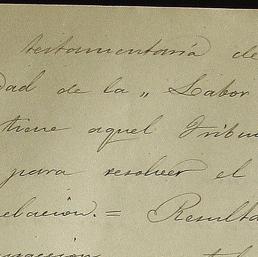 testamentaría de
dad de la „ Labor
tiene aquel Tribu
para resolver el
elación. = Resulta